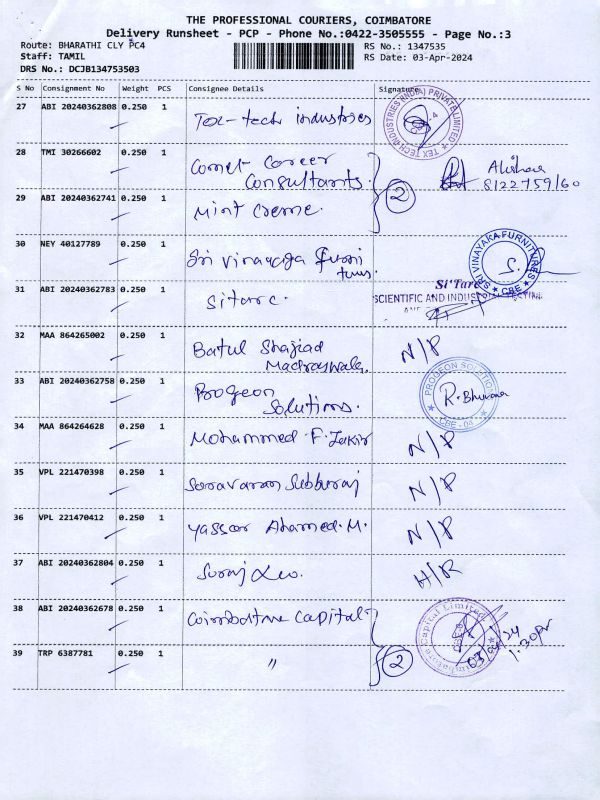 THE PROFESSIONAL COURIERS, COIMBATORE
Delivery Runsheet - PCP - Phone No.:0422-3505555 - Page No.:3
Route: BHARATHI CLY PC4
RS No.: 1347535
Staff: TAMIL
RS Date: 03-Apr-2024
DRS No.: DCJB134753503
S No Consignment No Weight PCS Consignee Details Signature
27 ABI 20240362808 0.250 1 Tex-tech industries
TEX TECH INDUSTRIES (INDIA) PRIVATE LIMITED
28 TMI 30266602 0.250 1 Comet Career
Consultants.
2
8122759160
29 ABI 20240362741 0.250 1 Mint creme.
30 NEY 40127789 0.250 1 Sri vinayaga furni
tures.
SRI VINAYAKA FURNITURES
CBE
31 ABI 20240362783 0.250 1 Sitarc.
Si'Tarc
SCIENTIFIC AND INDUSTRIAL TESTING
32 MAA 864265002 0.250 1 Batul Shajiad
Madraswala.
N/P
33 ABI 20240362758 0.250 1 Progeon
Solutions.
PROGEON SOLUTIONS
R. Bhuvana
CBE - 04
34 MAA 864264628 0.250 1 Mohammed F. Zakir N/P
35 VPL 221470398 0.250 1 Saravanan Subburaj N/P
36 VPL 221470412 0.250 1 Yasser Ahamed.M. N/P
37 ABI 20240362804 0.250 1 Suraj Leo. H/R
38 ABI 20240362678 0.250 1 Coimbatore Capital
Coimbatore Capital Limited
39 TRP 6387781 0.250 1 "
2
03/4/24
1.30PM